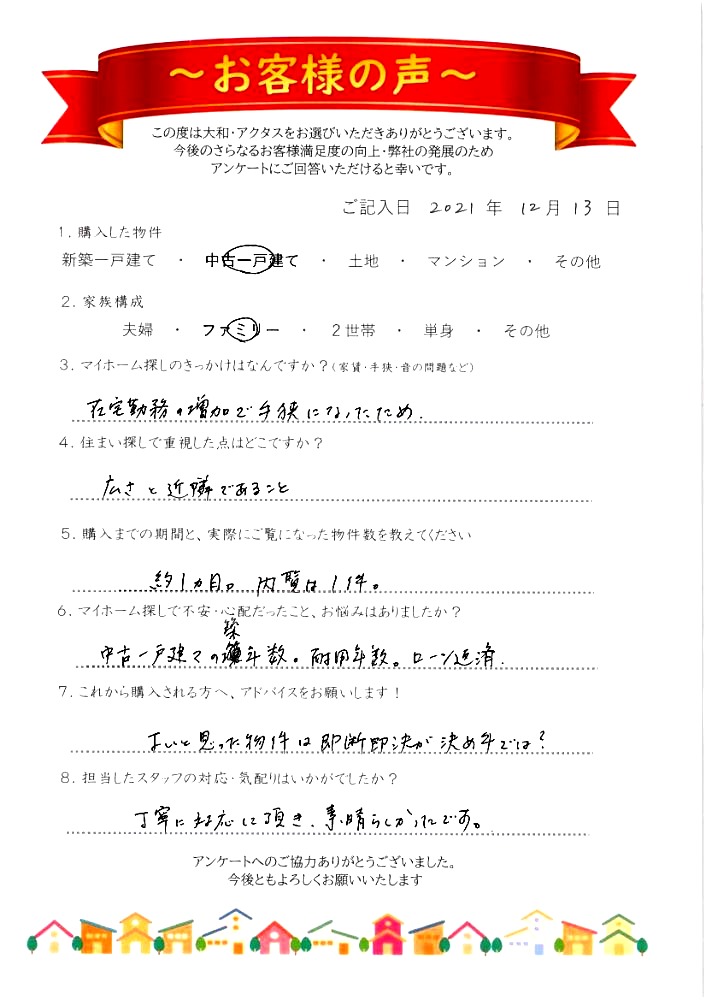 ～お客様の声～
この度は大和・アクタスをお選びいただきありがとうございます。
今後のさらなるお客様満足度の向上・弊社の発展のため
アンケートにご回答いただけると幸いです。
ご記入日 2021 年 12 月 13 日
1. 購入した物件
新築一戸建て ・ 中古一戸建て ・ 土地 ・ マンション ・ その他
2. 家族構成
夫婦 ・ ファミリー ・ 2世帯 ・ 単身 ・ その他
3. マイホーム探しのきっかけはなんですか？(家賃・手狭・音の問題など)
在宅勤務の増加で手狭になったため.
4. 住まい探しで重視した点はどこですか？
広さと近隣であること
5. 購入までの期間と、実際にご覧になった物件数を教えてください
約1カ月。内覧は1件。
6. マイホーム探しで不安・心配だったこと、お悩みはありましたか？
中古一戸建ての築年数。耐用年数。ローン返済.
7. これから購入される方へ、アドバイスをお願いします！
よいと思った物件は即断即決が決め手では？
8. 担当したスタッフの対応・気配りはいかがでしたか？
丁寧に対応して頂き、素晴らしかったです。
アンケートへのご協力ありがとうございました。
今後ともよろしくお願いいたします